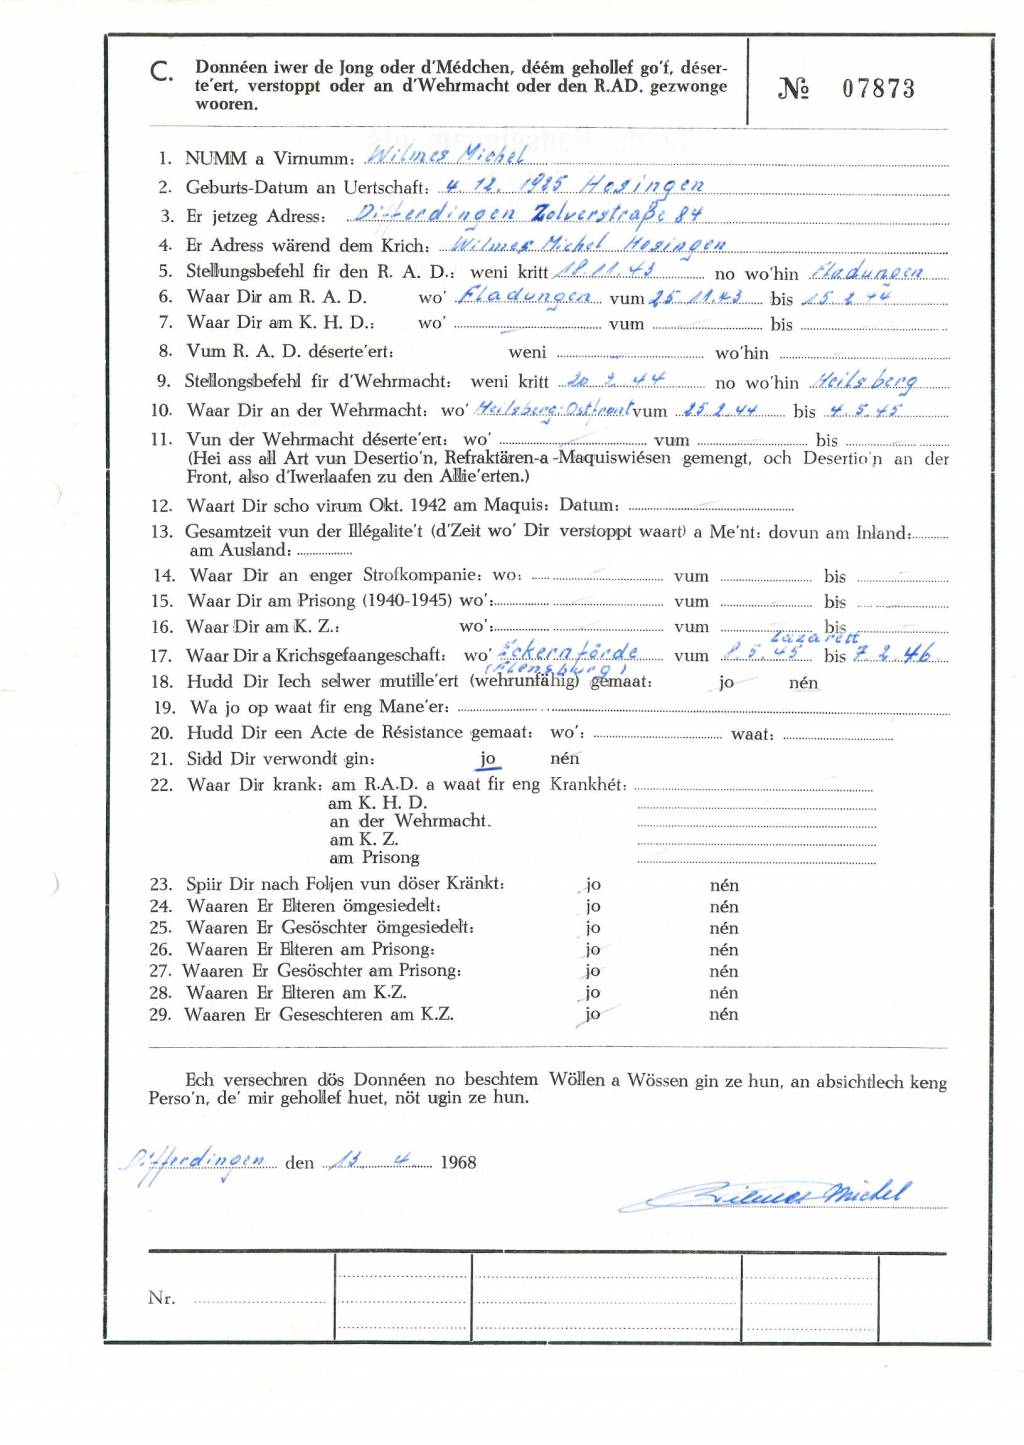 C. Donnéen iwer de Jong oder d'Médchen, déém gehollef go'f, déser-
te'ert, verstoppt oder an d'Wehrmacht oder den R.AD. gezwonge
wooren.
№ 07873
1. NUMM a Virnumm: Wilmes Michel
2. Geburts-Datum an Uertschaft: 4 12. 1925 Hosingen
3. Er jetzeg Adress: Differdingen Zolverstraße 84
4. Er Adress wärend dem Krich: Wilmes Michel Hosingen
5. Stellungsbefehl fir den R. A. D.: weni kritt 18.11.43 no wo'hin Fladungen
6. Waar Dir am R. A. D. wo' Fladungen vum 25.11.43 bis 15.2.44
7. Waar Dir am K. H. D.: wo' vum bis
8. Vum R. A. D. déserte'ert: weni wo'hin
9. Stellongsbefehl fir d'Wehrmacht: weni kritt 20.2.44 no wo'hin Heilsberg
10. Waar Dir an der Wehrmacht: wo' Heilsberg: Ostfront vum 25.2.44 bis 4.5.45
11. Vun der Wehrmacht déserte'ert: wo' vum bis
(Hei ass all Art vun Desertio'n, Refraktären-a-Maquiswiésen gemengt, och Desertio'n an der
Front, also d'Iwerlaafen zu den Allie'erten.)
12. Waart Dir scho virum Okt. 1942 am Maquis: Datum:
13. Gesamtzeit vun der Illégalite't (d'Zeit wo' Dir verstoppt waart) a Me'nt: dovun am Inland:
am Ausland:
14. Waar Dir an enger Strofkompanie: wo: vum bis
15. Waar Dir am Prisong (1940-1945) wo': vum bis
16. Waar Dir am K. Z.: wo': vum bis
Lazarett
17. Waar Dir a Krichsgefaangeschaft: wo' Eckernförde vum 8.5.45 bis 7 2 46
(Flensburg)
18. Hudd Dir Iech selwer mutille'ert (wehrunfähig) gemaat: jo nén
19. Wa jo op waat fir eng Mane'er:
20. Hudd Dir een Acte de Résistance gemaat: wo': waat:
21. Sidd Dir verwondt gin: jo nén
22. Waar Dir krank: am R.A.D. a waat fir eng Krankhét:
am K. H. D.
an der Wehrmacht.
am K. Z.
am Prisong
23. Spiir Dir nach Foljen vun döser Kränkt: jo nén
24. Waaren Er Elteren ömgesiedelt: jo nén
25. Waaren Er Gesöschter ömgesiedelt: jo nén
26. Waaren Er Elteren am Prisong: jo nén
27. Waaren Er Gesöschter am Prisong: jo nén
28. Waaren Er Elteren am K.Z. jo nén
29. Waaren Er Geseschteren am K.Z. jo nén
Ech versechren dös Donnéen no beschtem Wöllen a Wössen gin ze hun, an absichtlech keng
Perso'n, de' mir gehollef huet, nöt ugin ze hun.
Differdingen den 13. 4. 1968
Wilmes Michel
Nr.